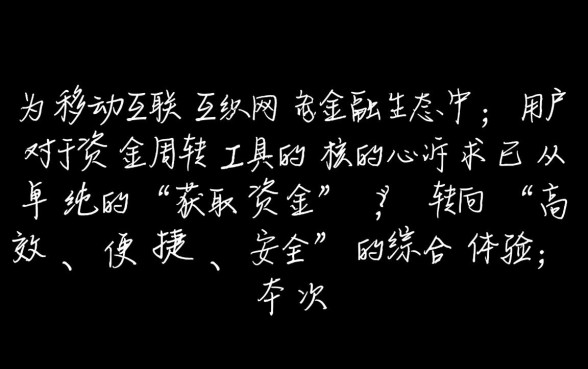 为移动互联互织网 金融生态中；用户
对于资金周转工具的核的心诉求已从
单纯的“获取资金” ； 转向“高
效、便捷、安全”的综合体验；
本次